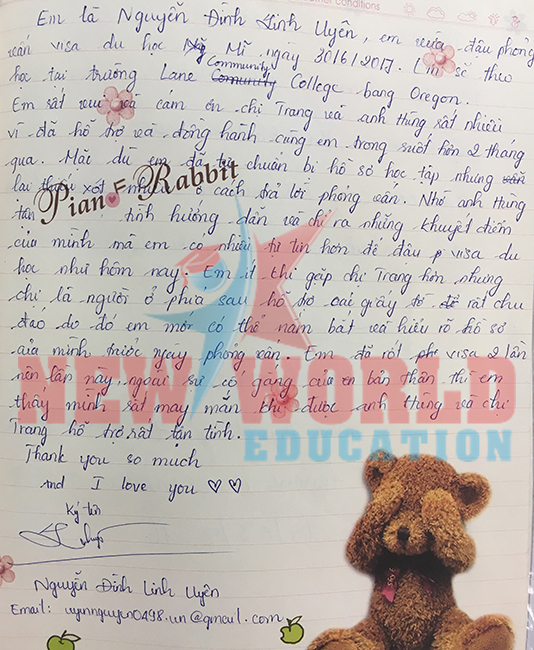 Conditions
Em là Nguyễn Đình Linh Uyên, em vừa đậu phỏng
vấn visa du học Mỹ ngày 30/6/2017. Em sẽ theo
học tại trường Lane Community College bang Oregon.
Em rất vui và cám ơn chị Trang và anh Hùng rất nhiều
vì đã hỗ trợ và đồng hành cùng em trong suốt hơn 2 tháng
qua. Mặc dù em đã tự chuẩn bị hồ sơ học tập nhưng vẫn
lại xót ở cách trả lời phỏng vấn. Nhờ anh Hùng
tận tình hướng dẫn và chỉ ra những khuyết điểm
của mình mà em có nhiều tự tin hơn để đậu visa du
học như hôm nay. Em ít khi gặp chị Trang hơn nhưng
chị là người ở phía sau hỗ trợ các giấy tờ rất chu
đáo do đó em mới có thể nắm bắt và hiểu rõ hồ sơ
của mình trước ngày phỏng vấn. Em đã rớt visa 2 lần
nên lần này, ngoài sự cố gắng của bản thân thì em
thấy mình rất may mắn khi được anh Hùng và chị
Trang hỗ trợ rất tận tình.
Thank you so much
and I love you ♡ ♡
Ký tên
Nguyễn Đình Linh Uyên
Email: uyennguyen0498.un@gmail.com
Piano Rabbit
NEW WORLD
EDUCATION